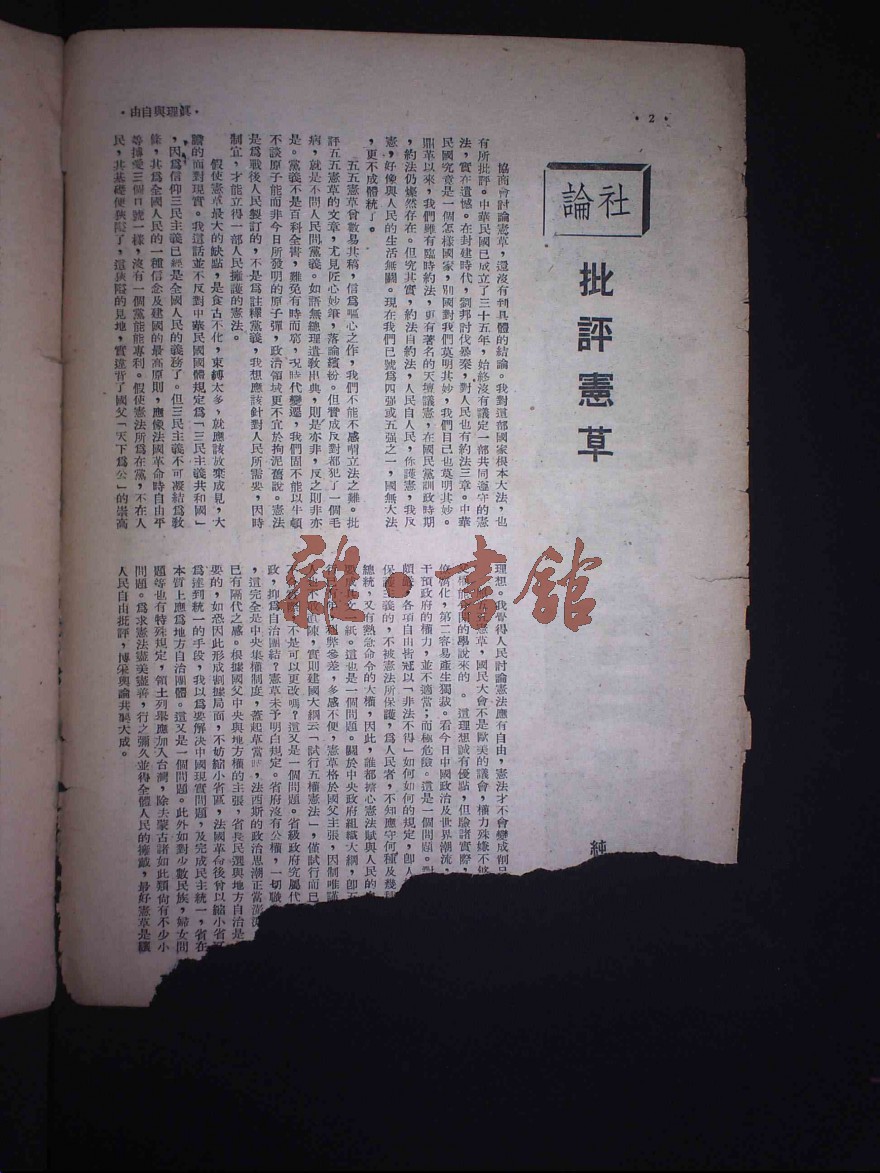 ·2·
·由自與理眞·
論社
批評憲草
純
協商會討論憲草，還沒有到具體的結論。我對這部國家根本大法，也
有所批評。中華民國已成立了三十五年，始終沒有議定一部共同遵守的憲
法，實在遺憾。在封建時代，劉邦討伐暴秦，對人民也有約法三章。中華
民國究竟是一個怎樣國家，別國對我們莫明其妙，我們自己也莫明其妙。
鼎革以來，我們雖有臨時約法，更有著名的天壇議憲，在國民黨訓政時期
，約法仍燦然存在。但究其實，約法自約法，人民自人民，你護憲，我反
憲，好像與人民的生活無關。現在我們已號爲四强或五强之一，國無大法
，更不成體統了。
五五憲草曾數易其稿，信爲嘔心之作，我們不能不感喟立法之難。批
評五五憲草的文章，尤見匠心妙筆，落論繽紛。但贊成反對都犯了一個毛
病，就是不問人民問黨義。如語無總理遺敎出典，則是亦非，反之則非亦
是。黨義不是百科全書，難免有時而窮，况時代變遷，我們固不能以牛頓
不談原子能而非今日所發明的原子彈，政治領域更不宜於拘泥舊說。憲法
是爲戰後人民製訂的，不是爲註釋黨義，我想應該針對人民所需要，因時
制宜，才能立得一部人民擁護的憲法。
假使憲草最大的缺點，是食古不化，束縛太多，就應該放棄成見，大
膽的面對現實。我這話並不反對中華民國國體規定爲「三民主義共和國」
，因爲信仰三民主義已經是全國人民的義務了。但三民主義不可凝結爲敎
條，其爲全國人民的一種信念及建國的最高原則，應像法國革命時自由平
等博愛三個口號一樣，沒有一個黨能能專利。假使憲法所爲在黨，不在人
民，其基礎便狹隘了，這狹隘的見地，實違背了國父「天下爲公」的崇高
理想。我覺得人民討論憲法應有自由，憲法才不會變成削足
五五憲草，國民大會不是歐美的議會，權力殊緣不够
權能分開的學說來的。這理想誠有優點，但驗諸實際，
腐化，第二容易產生獨裁。看今日中國政治及世界潮流，
干預政府的權力，並不適當；而極危險。這是一個問題。對
頗嚴，各項自由皆冠以「非法不得」如何如何的規定，卽人
保護主義的，不被憲法所保護，爲人民者，不知應守何種及幾
總統，又有熱急命令的大權，因此，誰都擔心憲法賦與人民的
變成具文廢紙。這也是一個問題。關於中央政府組織大綱，卽五
利弊參差，多感不便，憲草格於國父主張，因制唯謹
人也不敢直陳，實則建國大綱云「試行五權憲法」，僅試行而已
不是可以更改嗎？這又是一個問題。省級政府究屬代
政，抑爲自治團結？憲草未予明白規定。省府沒有公權，一切職
，這完全是中央集權制度，蓋起草當時，法西斯的政治思潮正當澎湃
已有隔代之感。根據國父中央與地方權的主張，省長民選與地方自治是
要的，如恐因此形成割據局面，不妨縮小省區，法國革命後曾以縮小省區
爲達到統一的手段，我以爲要解決中國現實問題，及完成民主統一，省在
本質上應爲地方自治團體。這又是一個問題。此外如對少數民族，婦女問
題等也有特殊規定，領土列舉應加入台灣，除去蒙古諸如此類尙有不少小
問題。爲求憲法盡美盡善，行之彌久並得全體人民的擁戴，最好憲草是讓
人民自由批評，博采輿論共襄大成。
雜·書館